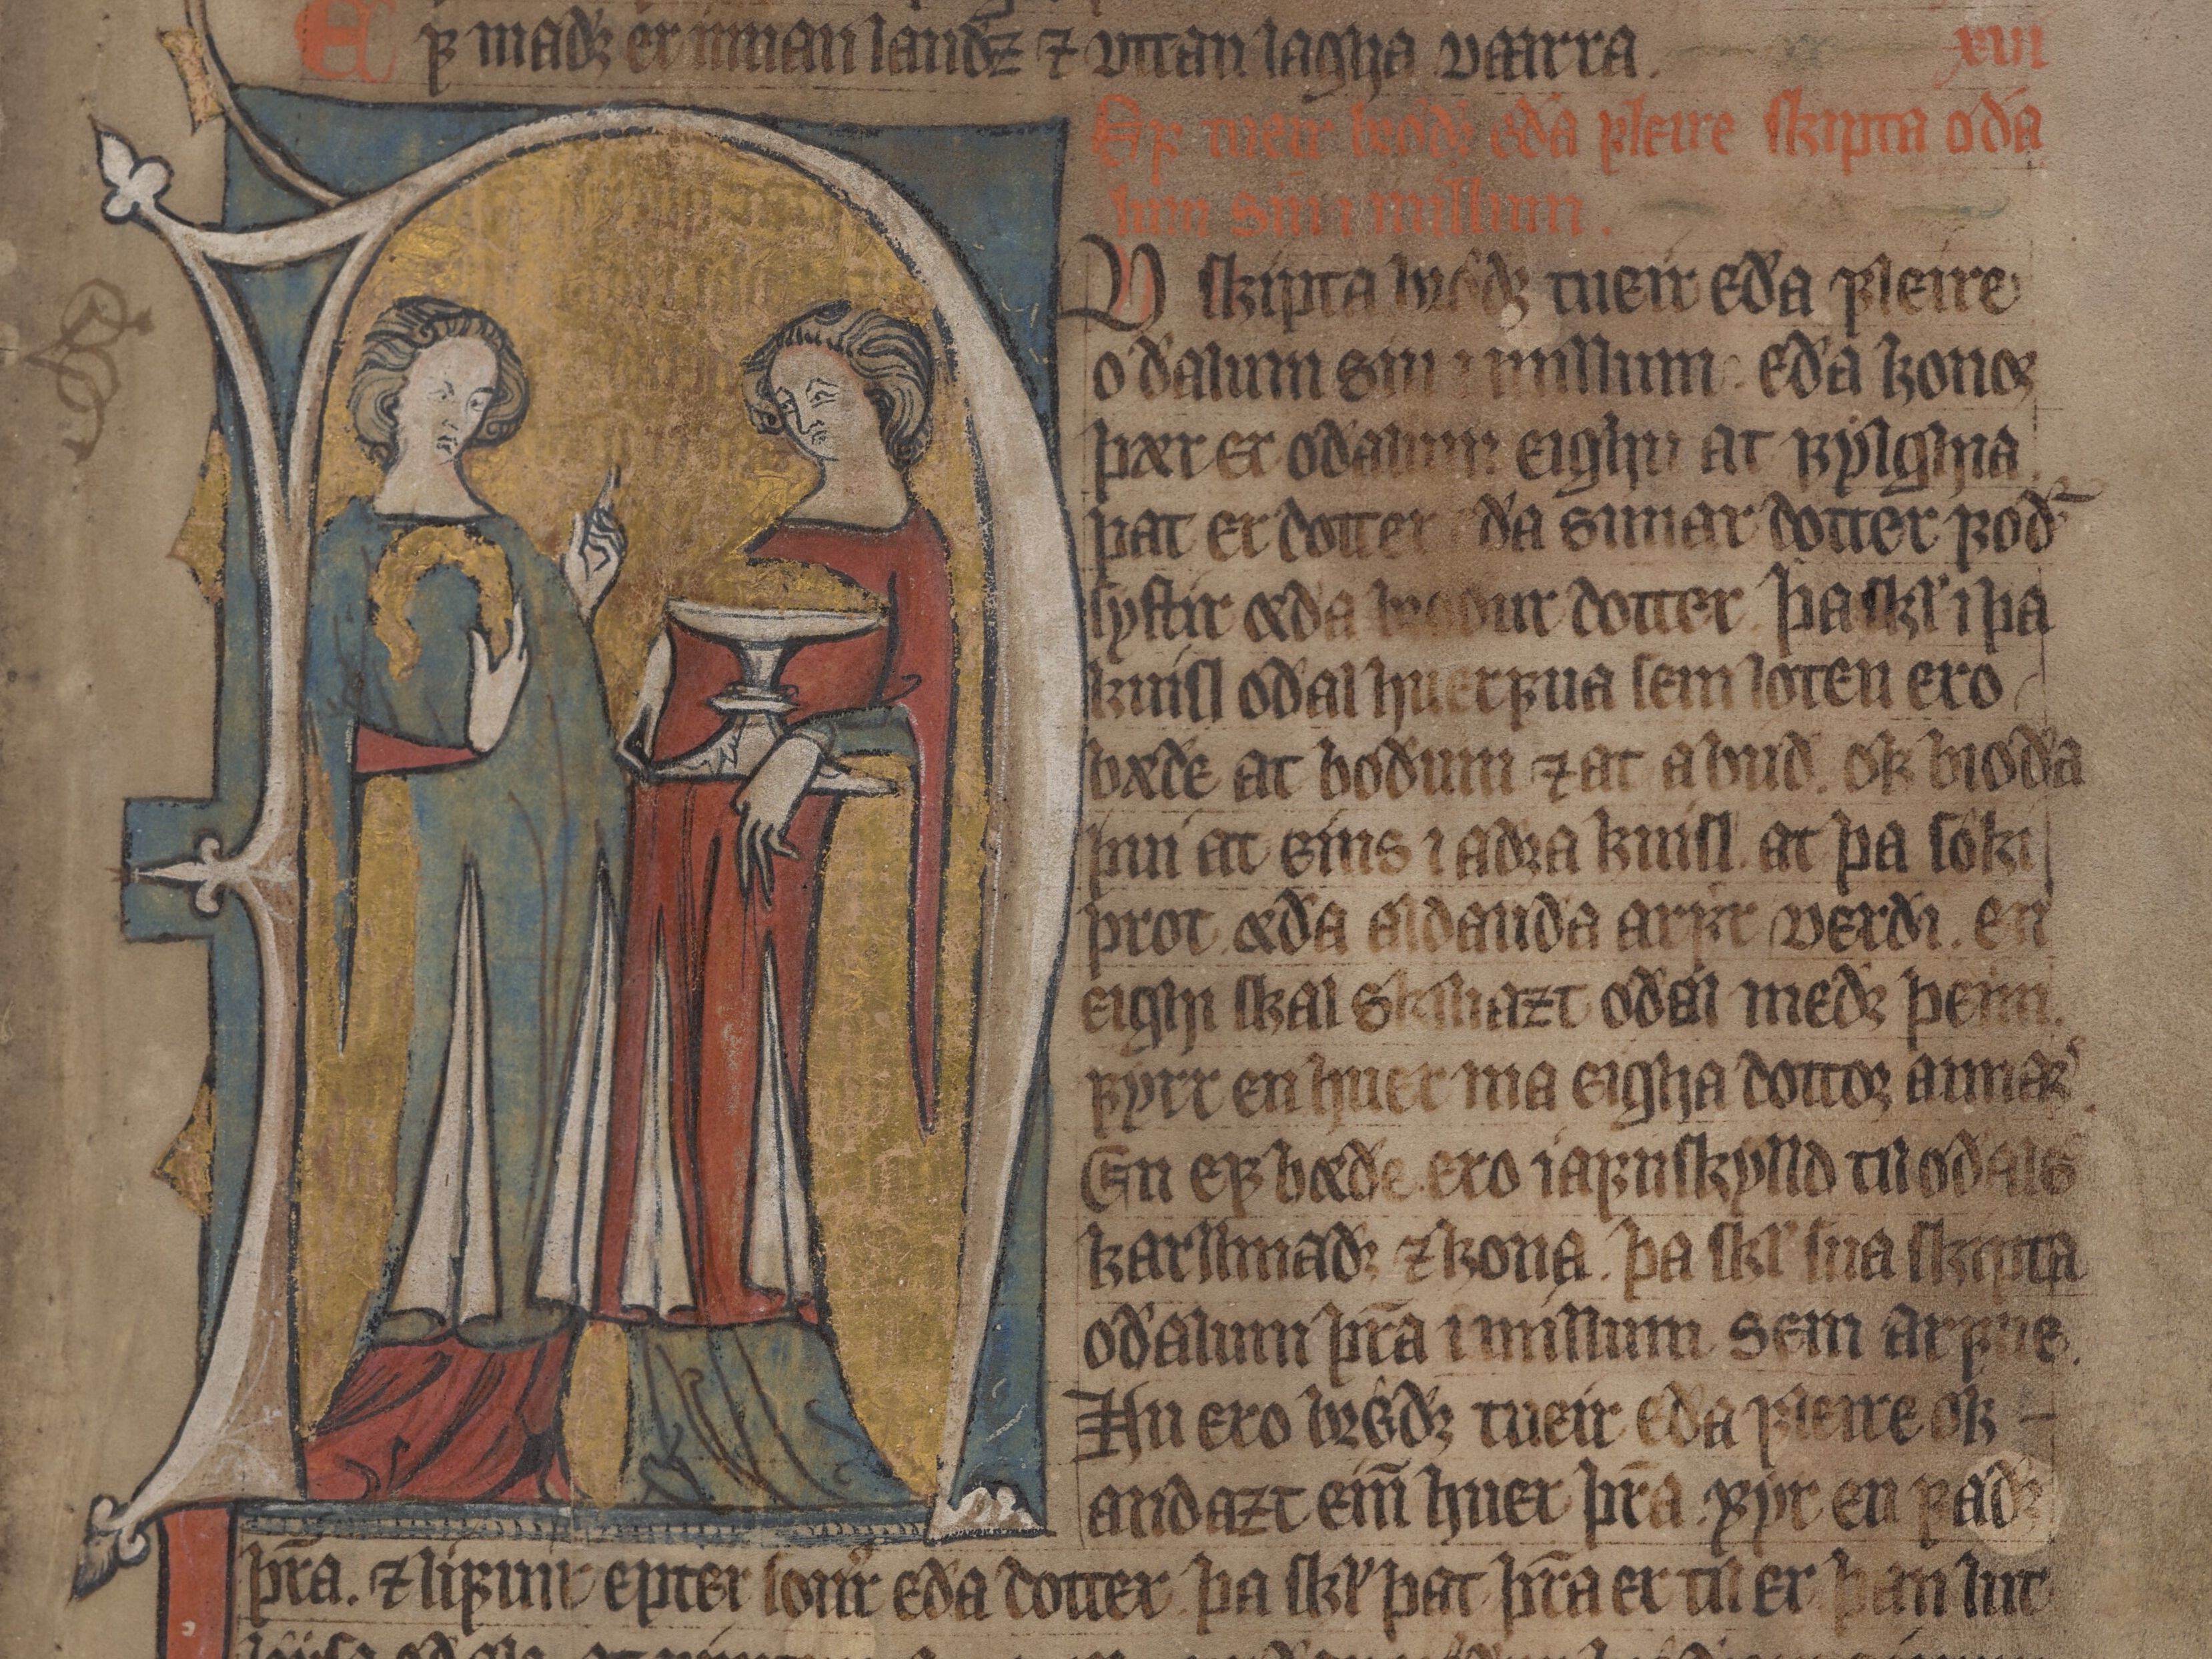 ꝼ maðꝛ er innan landz ⁊ vttan lagha vaarra. xvi
Ef tueir brøðꝛ eða ꝼleire skipta oða
lum sin i millium.
V skipta brøðꝛ tueir eða ꝼleire
oðalum sin i millium. eða konoꝛ
þær er oðalum eighu at ꝼylghia
þat er dotter eða sunar dotter ꝼoð
systir æða broður dotter. þa skl i þa
kuisl oðal huerꝼua sem loten ero
bæde at boðum ⁊ at abuð. ok bioða
þui at eins i aðꝛa kuisl. at þa søki
þrot. æða aldauða arꝼr verði. en
eighi skal skiliazt oðal með þeim.
ꝼyrr en huer ma eigha dottoꝛ annaꝛ
En eꝼ bæde ero iaꝼnskylld til oðals
karllmaðꝛ ⁊ kona. þa skl sua skipta
oðalum þra i millium sem arꝼue.
Nu ero brøðꝛ tueir eða ꝼleire ok
andazt einn huer þra ꝼyr en ꝼaðꝛ
þra. ⁊ liꝼuir epter sonr eða dotter þa skl þat þra er til er þan lut